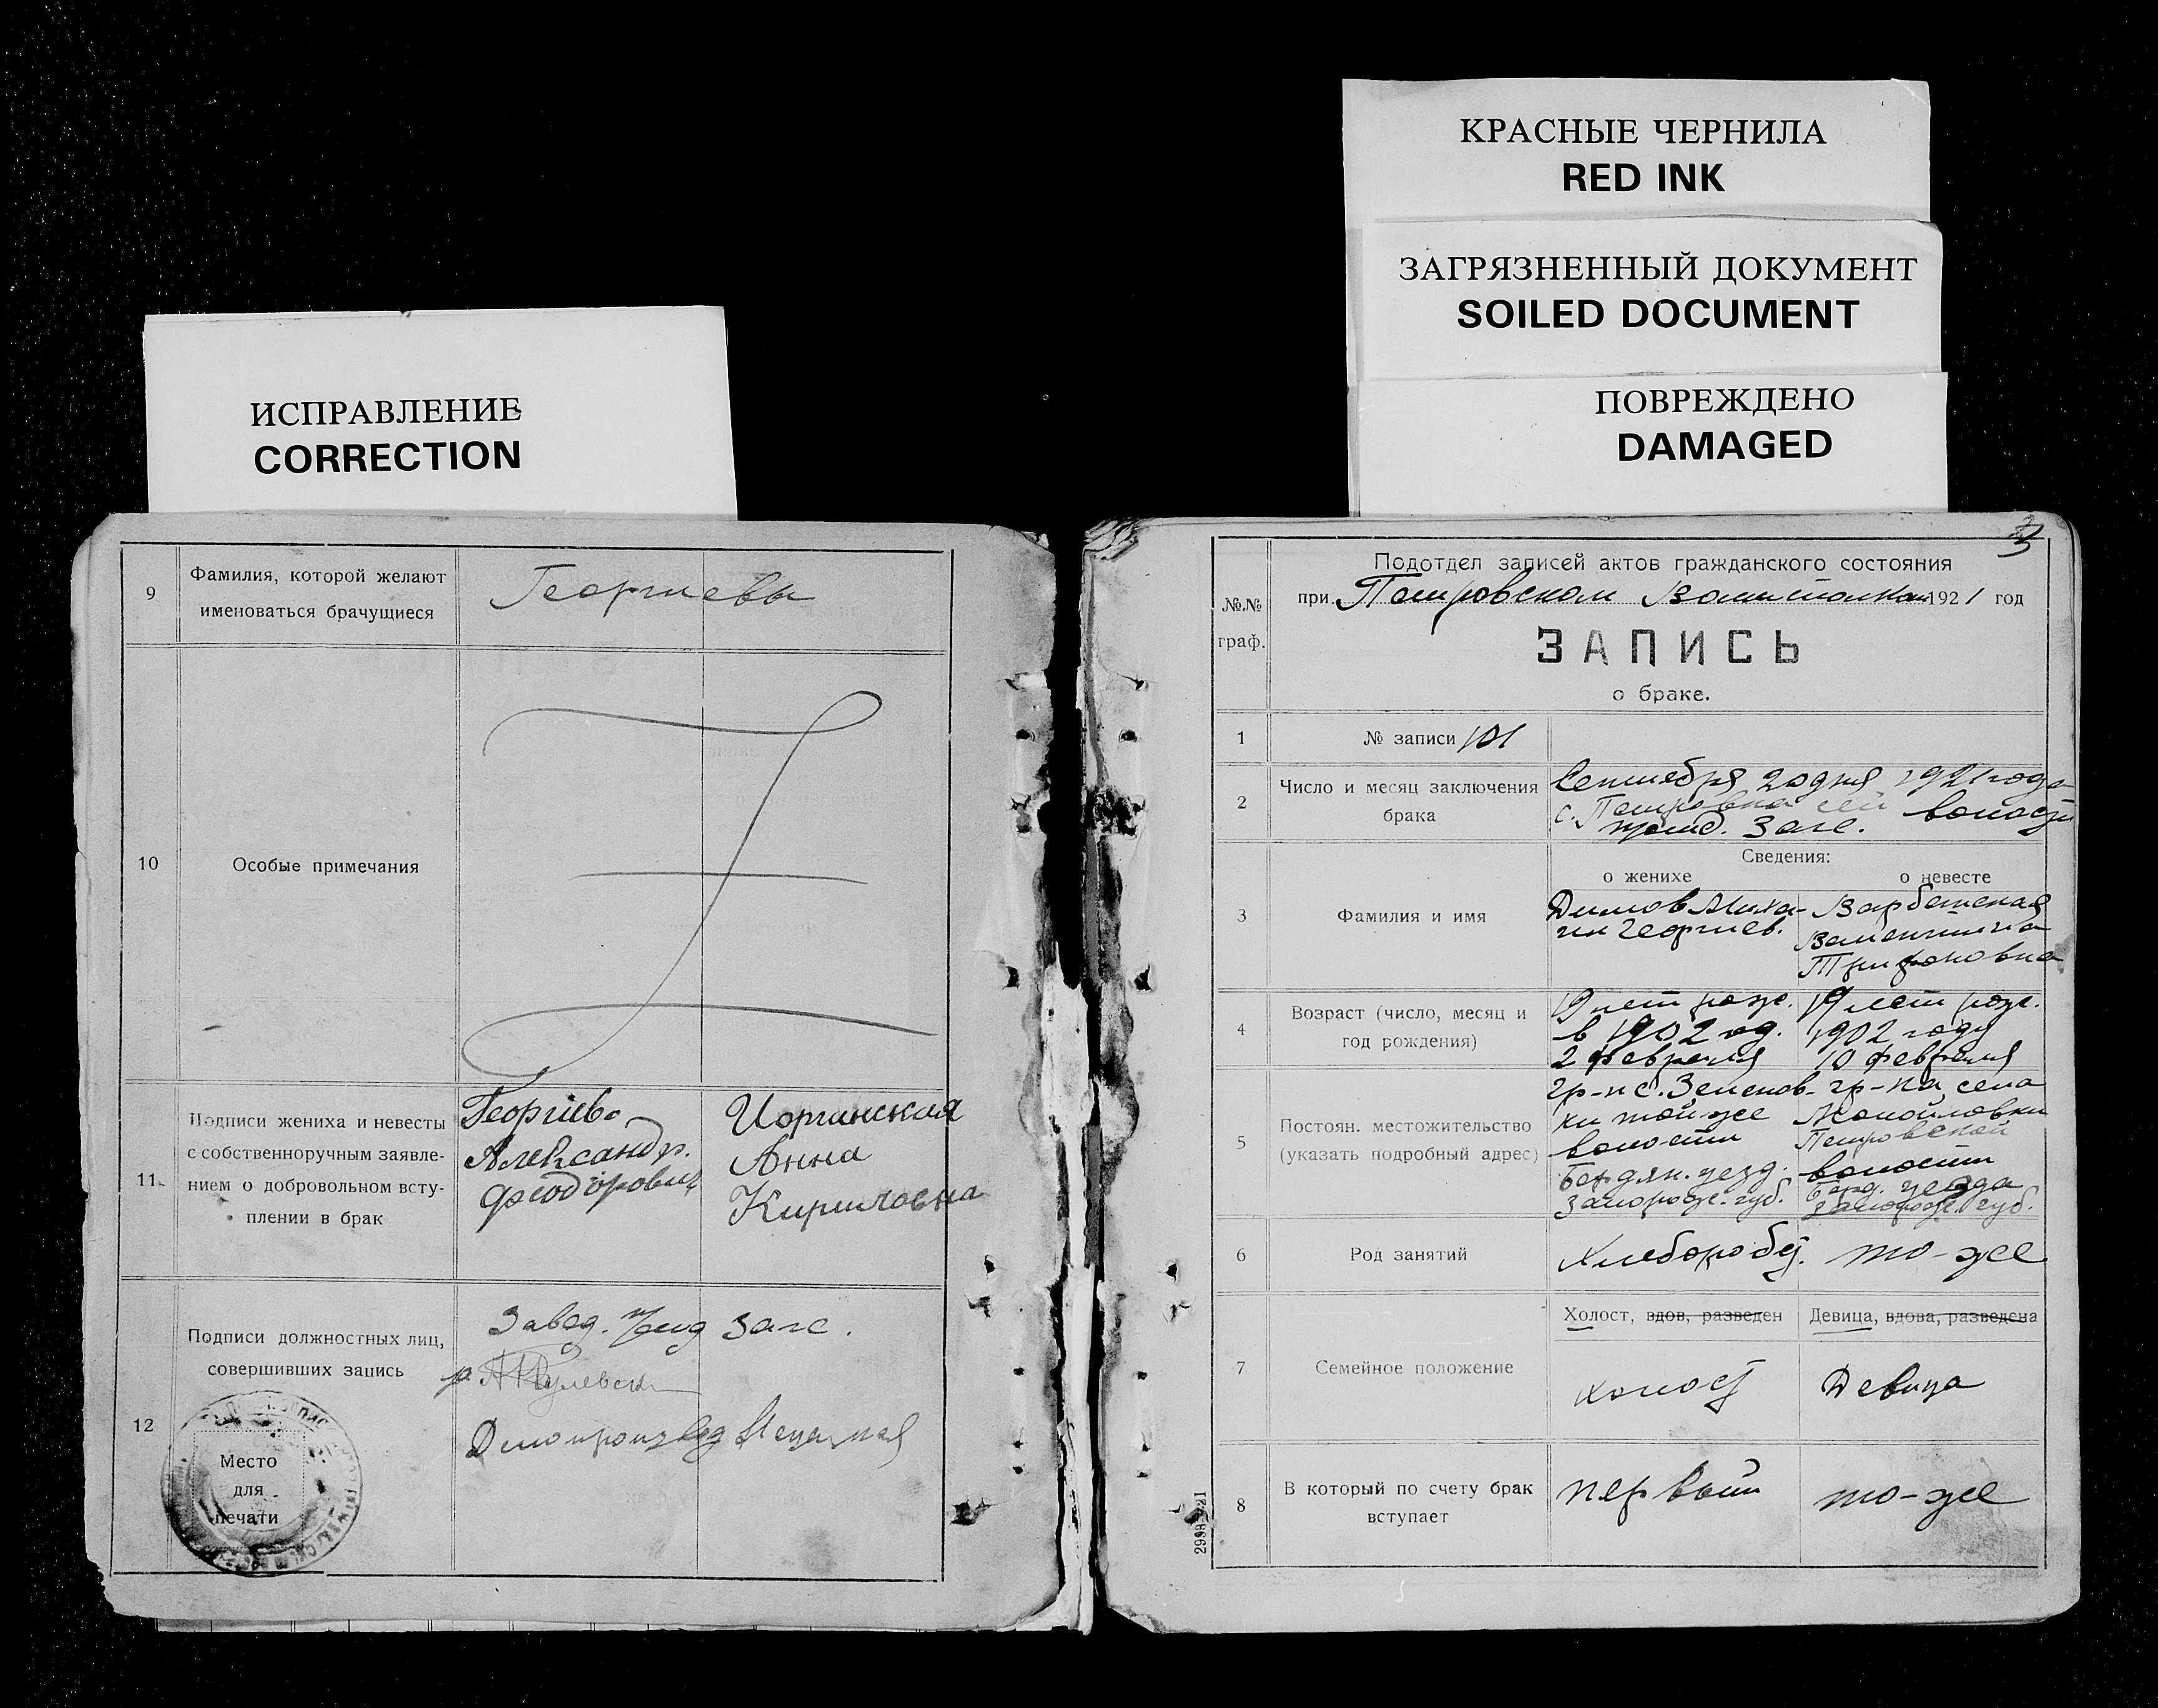 ИСПРАВЛЕНИЕ
CORRECTION
9
Фамилия, которой желают
именоваться брачущиеся
Георгиевы
10
Особые примечания
11
Подписи жениха и невесты
с собственноручным заявле-
нием о добровольном всту-
плении в брак
Георгиевъ
Александр.
Феодорович
Иорганская
Анна
Кириловна
12
Подписи должностных лиц,
совершивших запись
Завед. п/отд Загс.
Делопроизвод
Место
для
печати
КРАСНЫЕ ЧЕРНИЛА
RED INK
ЗАГРЯЗНЕННЫЙ ДОКУМЕНТ
SOILED DOCUMENT
ПОВРЕЖДЕНО
DAMAGED
3
№№
граф.
Подотдел записей актов гражданского состояния
при Петровском Волисполкоме 1921 год
ЗАПИСЬ
о браке.
1
№ записи 101
2
Число и месяц заключения
брака
Сентября 20 дня 1921 года
с. Петровка сей волости
Загс.
3
Фамилия и имя
Сведения:
о женихе
о невесте
Димов Миха-
ил Георгиев.
Варбанская
Валентина
Трифоновна
4
Возраст (число, месяц и
год рождения)
19 лет рожд.
в 1902 год.
2 февраля
19 лет рожд.
1902 году
10 февраля
5
Постоян. местожительство
(указать подробный адрес)
гр-н с. Зеленов-
ки той же
волости
Бердян. уезд.
Запорож. губ.
гр-ка села
Манойловки
Петровской
волости
Берд. уезда
Запорож. губ.
6
Род занятий
Хлебороб
то-же
7
Семейное положение
Холост, вдов, разведен
Девица, вдова, разведена
холост
Девица
8
В который по счету брак
вступает
первый
то-же
2998-921